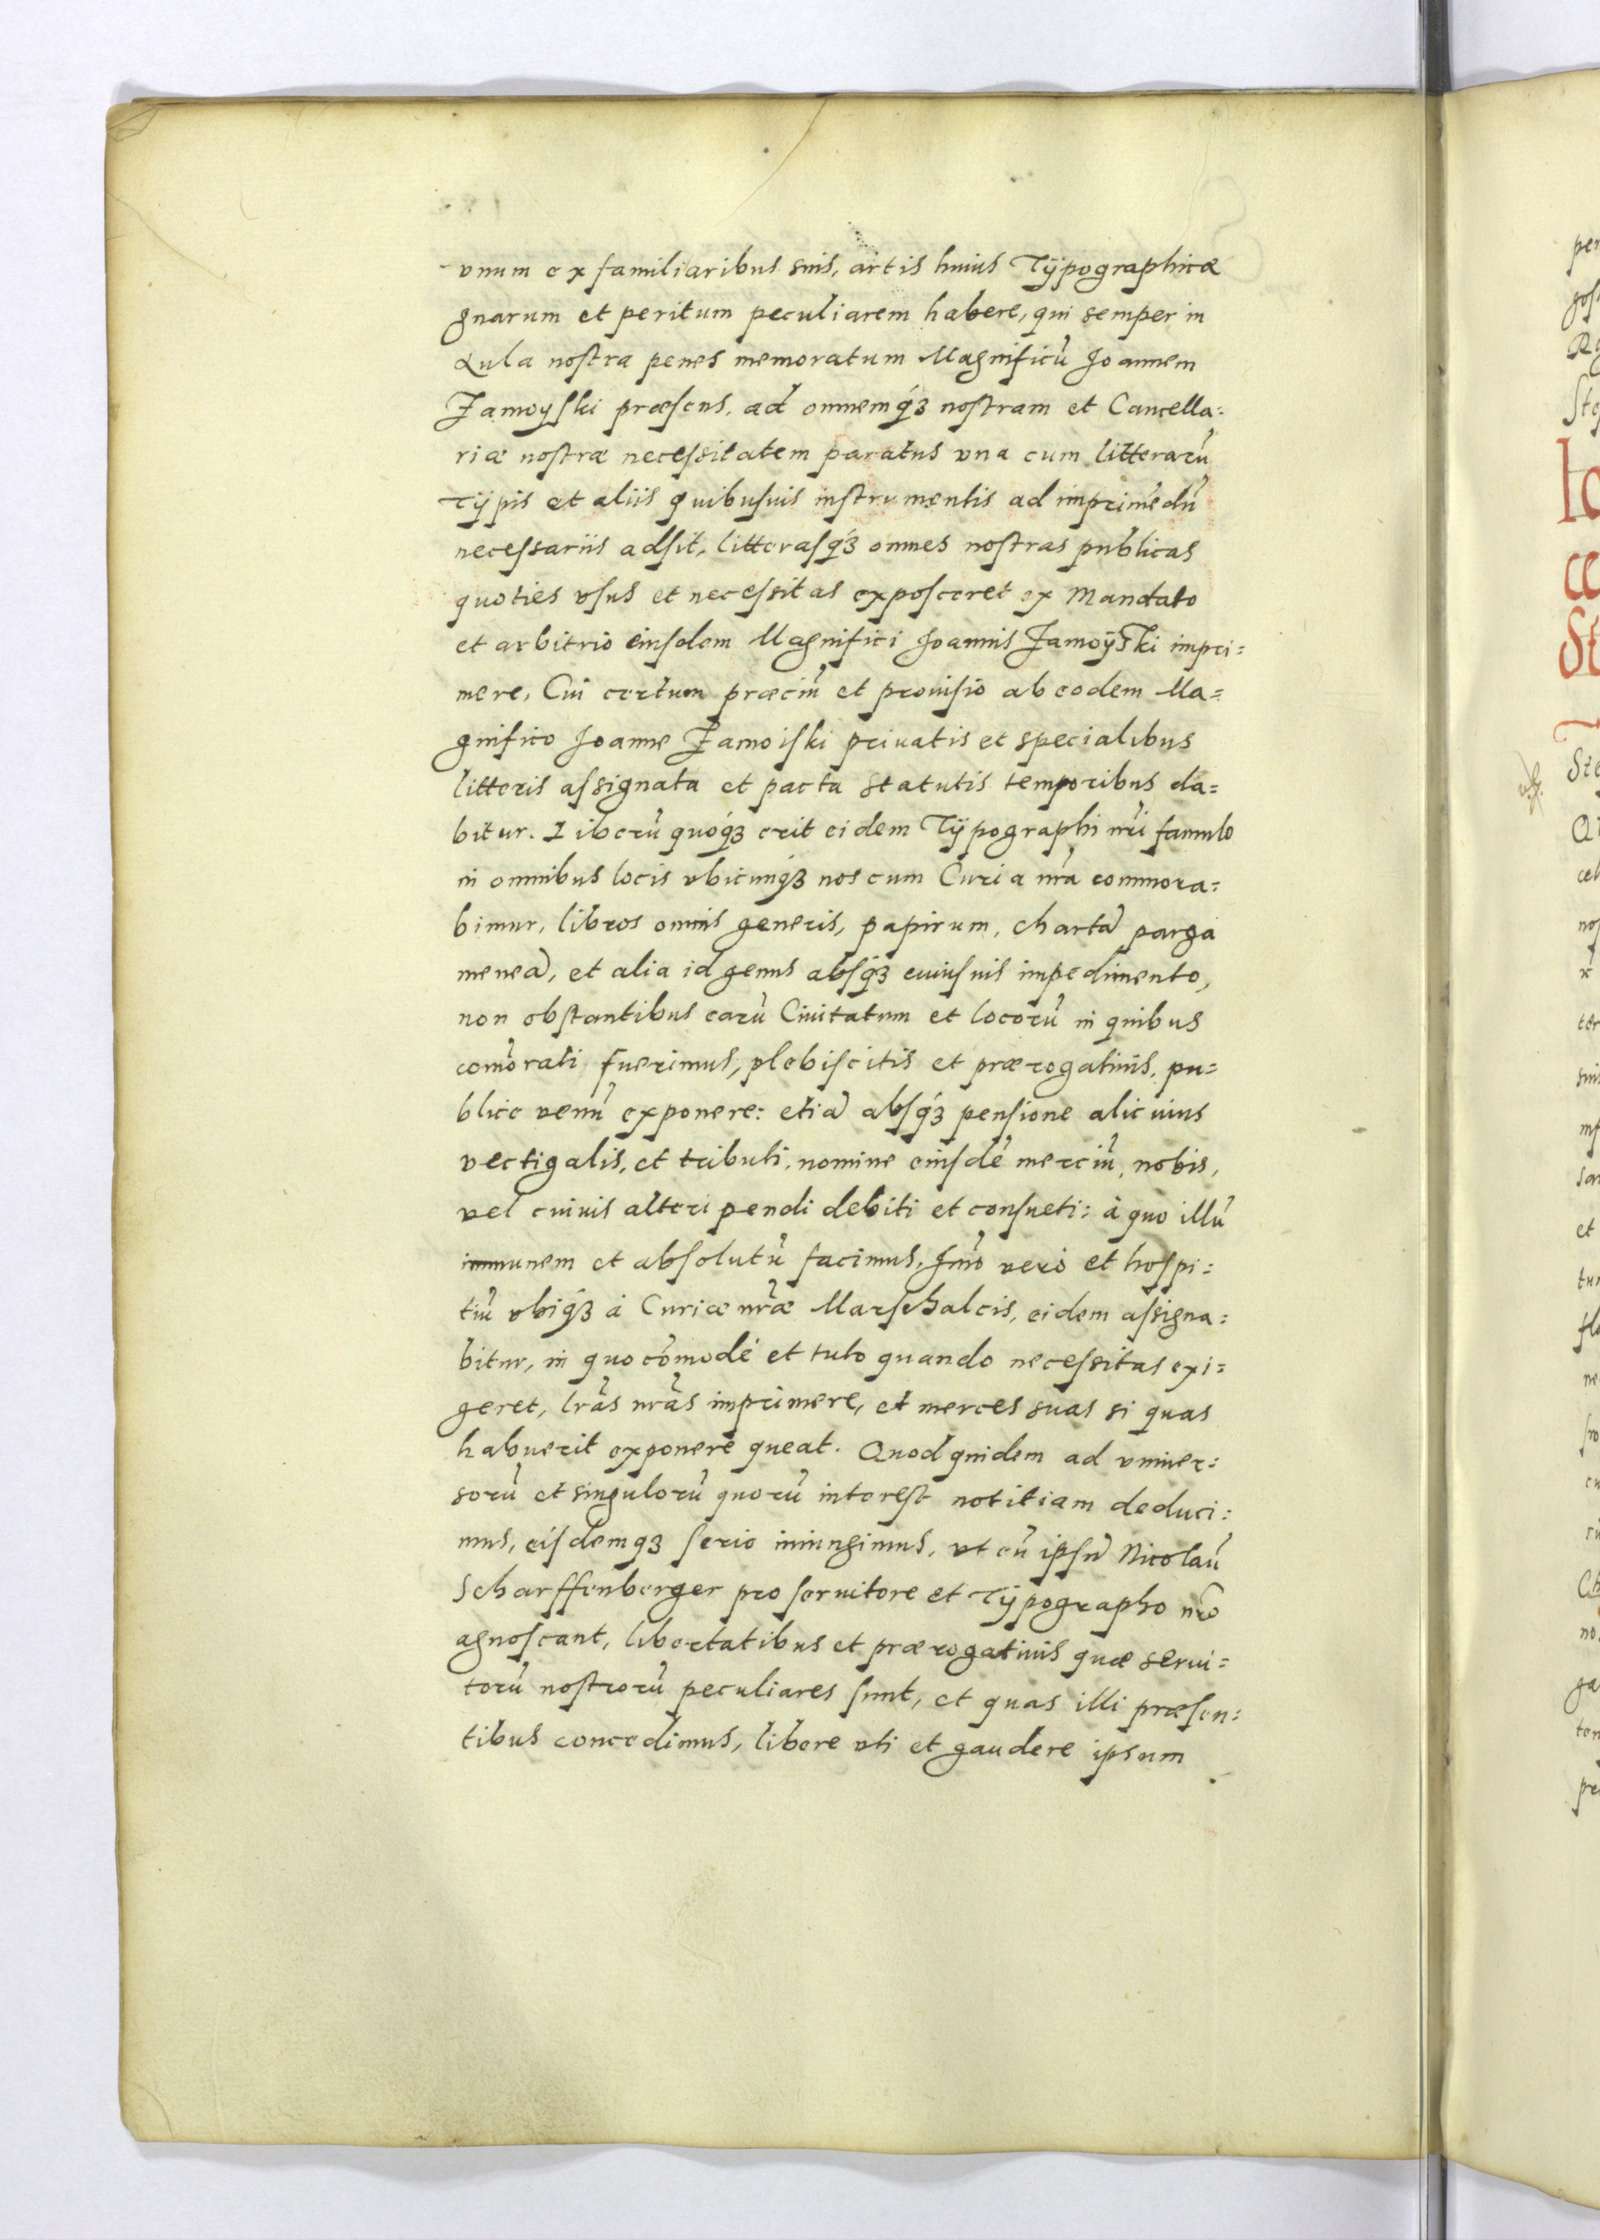 vnum ex familiaribus suis, artis huius Tÿpographicæ
gnarum et peritum peculiarem habere, qui semper in
Aula nostra penes memoratum Magnificũ Joannem
Zamoyski præsens, ad omnemq́ꝫ nostram et Cancella=
riæ nostræ necessitatem paratus vna cum litterarũ
Tÿpis et aliis quibusuis instrumentis ad imprimẽdũ
necessariis adsit, litterasq́ꝫ omnes nostras publicas
quoties vsus et necessitas exposceret ex Mandato
et arbitrio eiusdem Magnifici Joannis Zamoÿski impri=
mere, Cui certum præciũ et prouisio ab eodem Ma=
gnifico Joanne Zamoiski priuatis et specialibus
litteris assignata et pacta statutis temporibus da=
bitur. Liberũ quoq́ꝫ erit eidem Tÿpographi nr̃i famulo
in omnibus locis vbicunq́ꝫ nos cum Curia nr̃a commora=
bimur, libros omnis generis, papirum, chartã parga
meneã, et alia id genus absq́ꝫ cuiusuis impedimento,
non obstantibus earũ Ciuitatum et locorũ in quibus
com̃orati fuerimus, plebiscitis et prærogatiuis, pu=
blice venũ exponere: etiã absq́ꝫ pensione alicuius
vectigalis, et tributi, nomine eiusdẽ merciũ, nobis,
vel cuiuis alteri pendi debiti et consueti: à quo illũ
immunem et absolutũ facimus. Jmõ verò et hospi=
tiũ vbiq́ꝫ à Curiæ nr̃æ Marschalcis, eidem assigna=
bitur, in quo cõmodè et tuto quando necessitas exi=
geret, lr̃as nr̃as imprimere, et merces suas si quas
habuerit exponere queat. Quod quidem ad vniuer=
sorũ et singulorũ quorũ interest notitiam deduci=
mus, eisdemqꝫ serio iniungimus, vt eũ ipsũ Nicolaũ
Scharffenberger pro seruitore et Tÿpographo nr̃o
agnoscant, libertatibus et prærogatiuis quæ serui=
torũ nostrorũ peculiares sunt, et quas illi præsen=
tibus concedimus, libere vti et gaudere ipsum